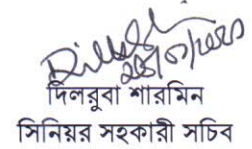 দিলরুবা শারমিন
সিনিয়র সহকারী সচিব